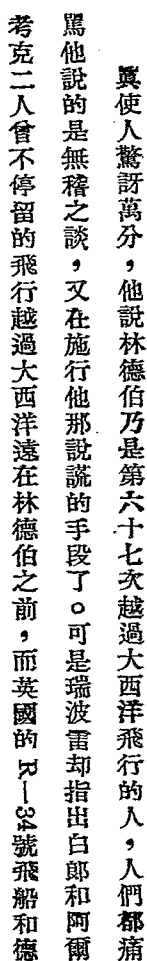 眞使人驚訝萬分，他說林德伯乃是第六十七次越過大西洋飛行的人，人們都痛
駡他說的是無稽之談，又在施行他那說謊的手段了。可是瑞波雷却指出白郎和阿爾
考克二人曾不停留的飛行越過大西洋遠在林德伯之前，而英國的R—34號飛船和德